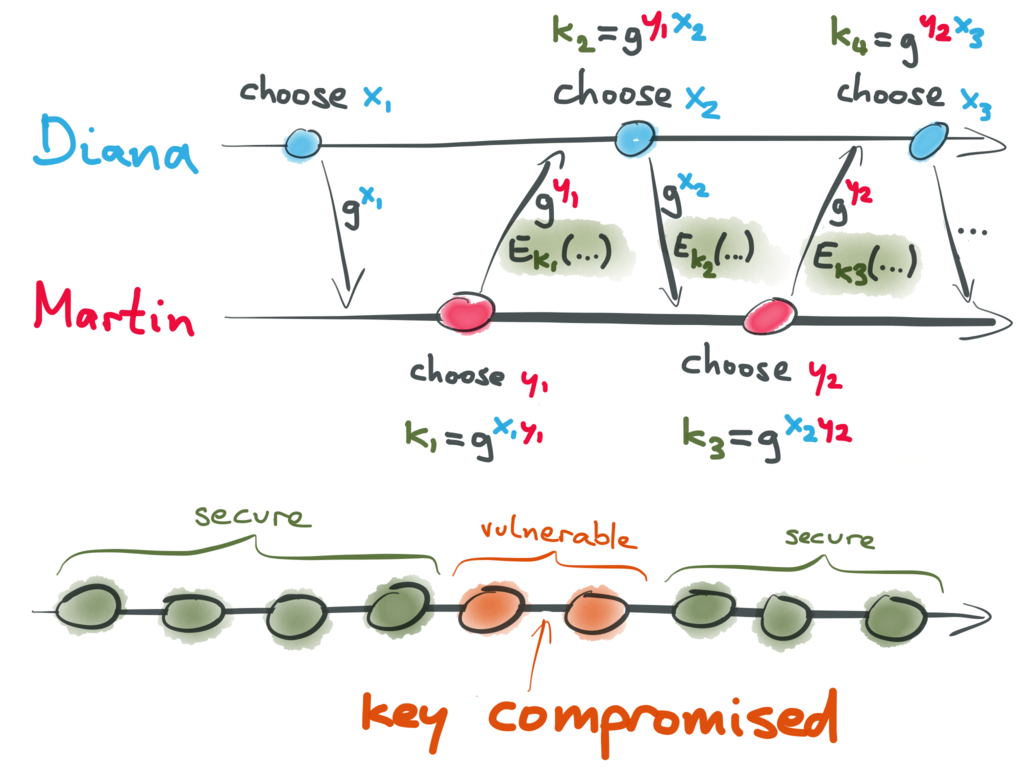 k₂=g^y₁x₂
k₄=g^y₂x₃
choose x₁
choose x₂
choose x₃
Diana
g^x₁
g^y₁
g^x₂
g^y₂
E_k₁(...)
E_k₂(...)
E_k3(...)
...
Martin
choose y₁
choose y₂
k₁=g^x₁y₁
k₃=g^x₂y₂
secure
vulnerable
secure
key compromised